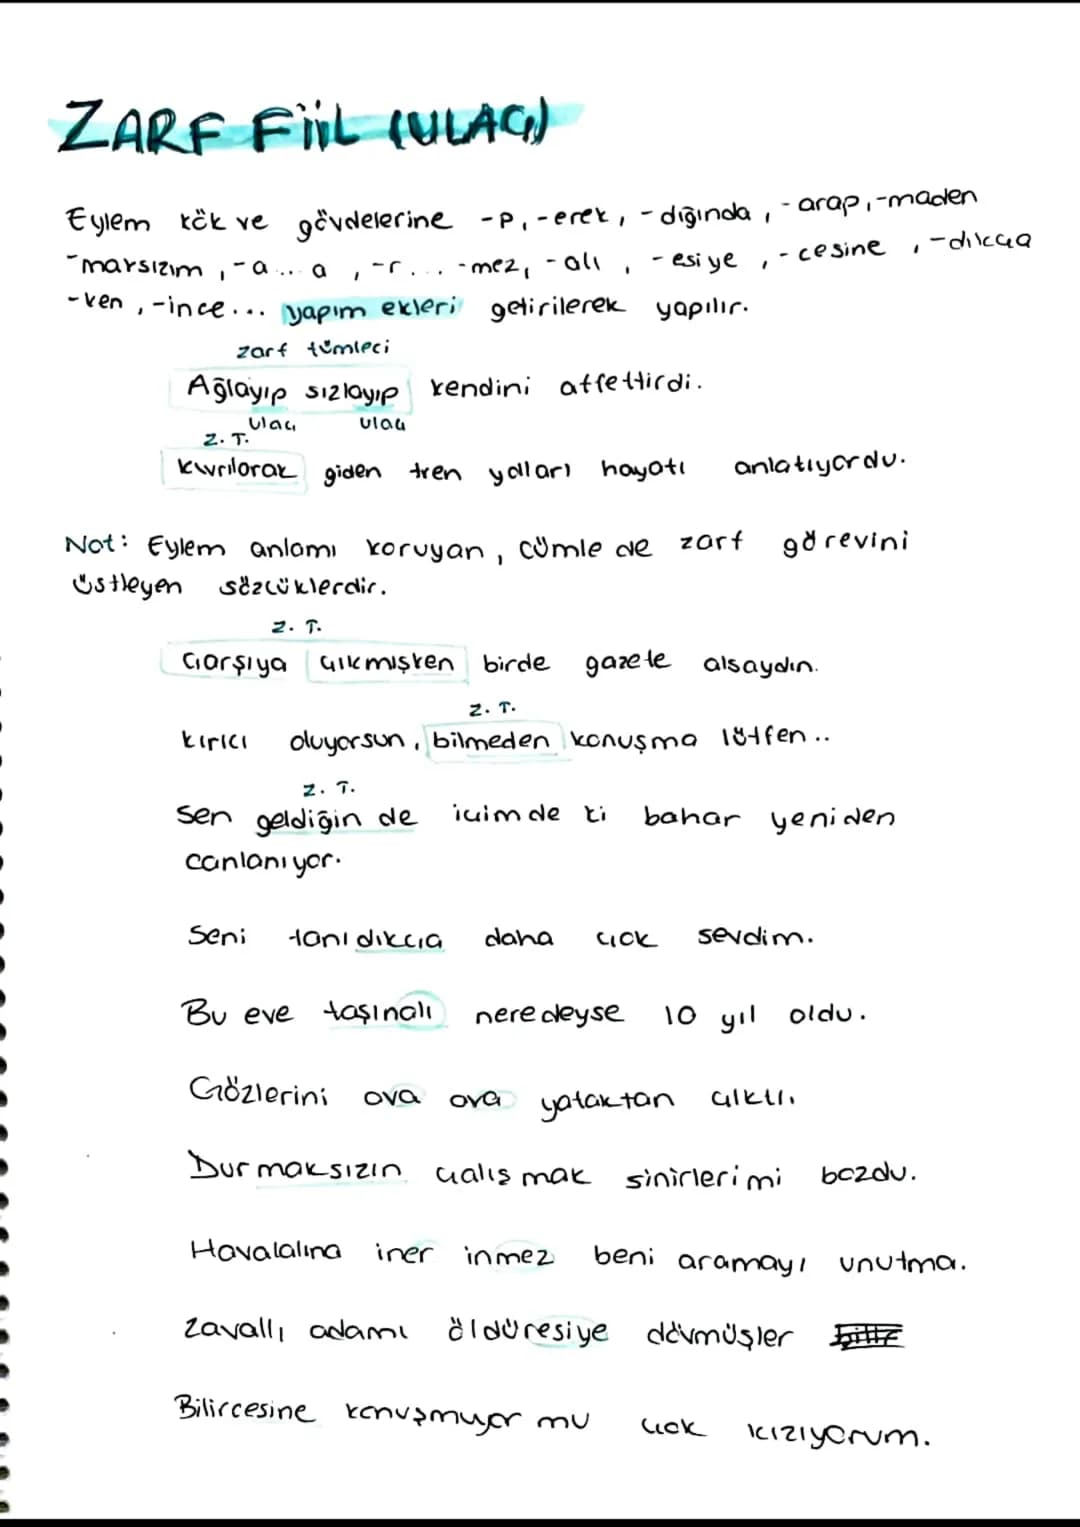 ZARF FİİL (ULAÇ)
Eylem kök ve gövdelerine -p, -erek, -dığında, -arap, -maden
-marsızım, -a... a, -r... -mez, -alı, -esiye, -cesine, -dıkça
-ken, -ince... yapım ekleri getirilerek yapılır.
zarf tümleci
Ağlayıp sızlayıp kendini affettirdi.
ulaç ulaç
Z. T.
kıvrılarak giden tren yolları hayatı anlatıyordu.
Not: Eylem anlamı koruyan, cümle de zarf görevini
üstleyen sözcüklerdir.
Z. T.
Çarşıya çıkmışken birde gazete alsaydın.
Z. T.
kırıcı oluyorsun, bilmeden konuşma lütfen..
Z. T.
Sen geldiğin de içimde ki bahar yeniden
canlanıyor.
Seni tanıdıkça daha çok sevdim.
Bu eve taşınalı neredeyse 10 yıl oldu.
Gözlerini ova ova yataktan çıktı.
Durmaksızın çalışmak sinirlerimi bozdu.
Havalalına iner inmez beni aramayı unutma.
Zavallı adamı öldüresiye dövmüşler
Bilircesine konuşmuyor mu çok kızıyorum.